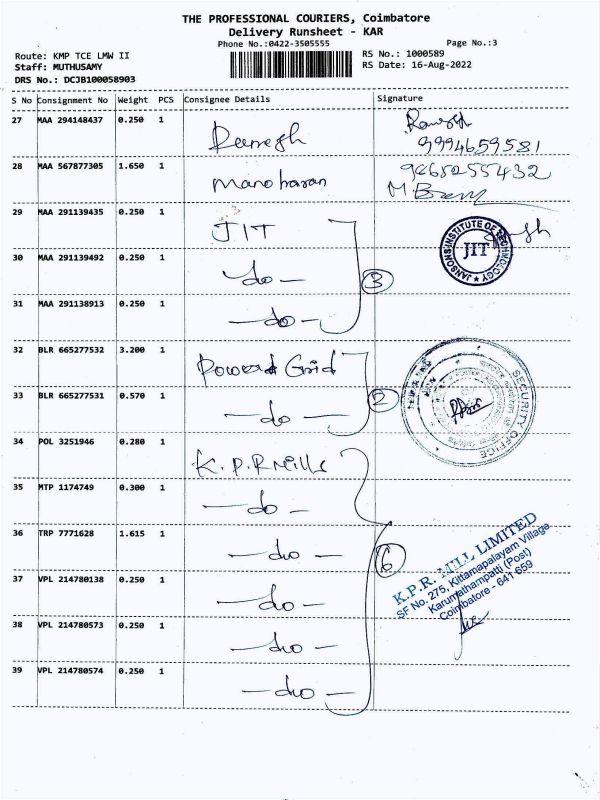 THE PROFESSIONAL COURIERS, Coimbatore
Delivery Runsheet - KAR
Phone No.:0422-3505555
Page No.:3
Route: KMP TCE LMW II
RS No.: 1000589
Staff: MUTHUSAMY
RS Date: 16-Aug-2022
DRS No.: DCJB100058903
S No Consignment No Weight PCS Consignee Details Signature
27 MAA 294148437 0.250 1 Ramesh
9994659581
28 MAA 567877305 1.650 1 Manoharan 9865255432
29 MAA 291139435 0.250 1 JIT
JANSONS INSTITUTE OF TECHNOLOGY
JIT
30 MAA 291139492 0.250 1 — do —
3
31 MAA 291138913 0.250 1 — do —
32 BLR 665277532 3.200 1 Power Grid
SECURITY OFFICE
33 BLR 665277531 0.570 1 — do —
2
34 POL 3251946 0.280 1 K.P.R Mills
35 MTP 1174749 0.300 1 — do —
36 TRP 7771628 1.615 1 — do —
6
K.P.R. MILL LIMITED
SF No. 275, Kittampalayam Village
Karumathampatti (Post)
Coimbatore - 641 659
37 VPL 214780138 0.250 1 — do —
38 VPL 214780573 0.250 1 — do —
39 VPL 214780574 0.250 1 — do —